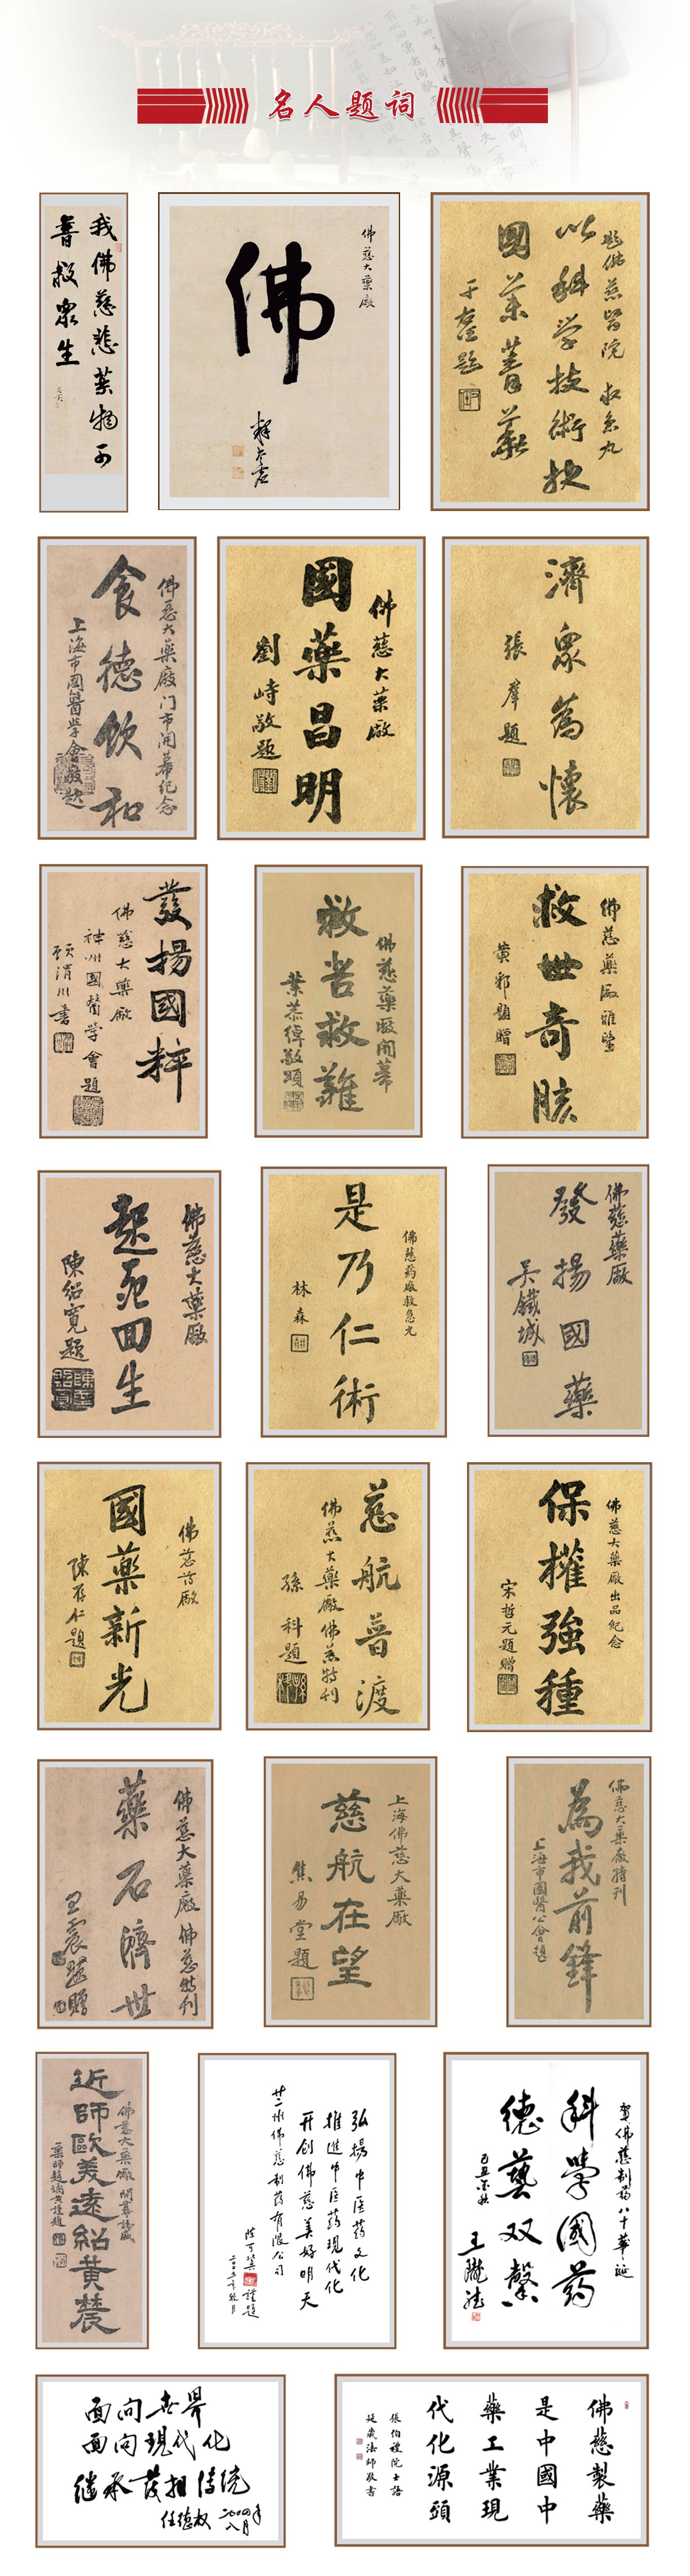 名人题词
我佛慈悲药物可
普救众生
佛慈大藥廠
佛
題佛慈醫院
以科学技術
國药菁華
于右任題
佛慈大藥廠门市開幕纪念
食德饮和
上海市國醫学會敬题
佛慈大藥廠
國藥昌明
劉峙敬题
濟眾為懷
張羣題
發揚國粹
佛慈大藥廠
神州國醫学會題
顾渭川書
佛慈藥厰開幕
救苦救難
葉恭綽敬題
佛慈藥廠雅鑒
救世奇
黄郛題贈
佛慈大藥廠
起死回生
陳紹寬題
佛慈药廠救急
是乃仁術
林森
佛慈藥廠
發揚國藥
吴鐵城
佛慈药廠
國藥新光
陳存仁題
慈航普渡
佛慈大藥廠佛慈特刊
孫科題
佛慈大藥廠出品紀念
保權強種
宋哲元題贈
佛慈大藥廠佛慈特刊
藥石濟世
王震題贈
上海佛慈大藥廠
慈航在望
焦易堂題
佛慈大藥廠特刊
為我前鋒
上海市國醫公會題
佛慈大藥廠開幕誌盛
近師歐美遠紹黄農
弘揚中医药文化
推進中医药现代化
开创佛慈美好明天
佛慈制药有限公司
贺佛慈制药八十華诞
科學國药
德藝双馨
面向世界
面向現代化
继承发扬传统
任德权 二〇〇四年
八月
佛慈製藥
是中國中
藥工業現
代化源頭
張伯禮院士語
延藏法師敬書